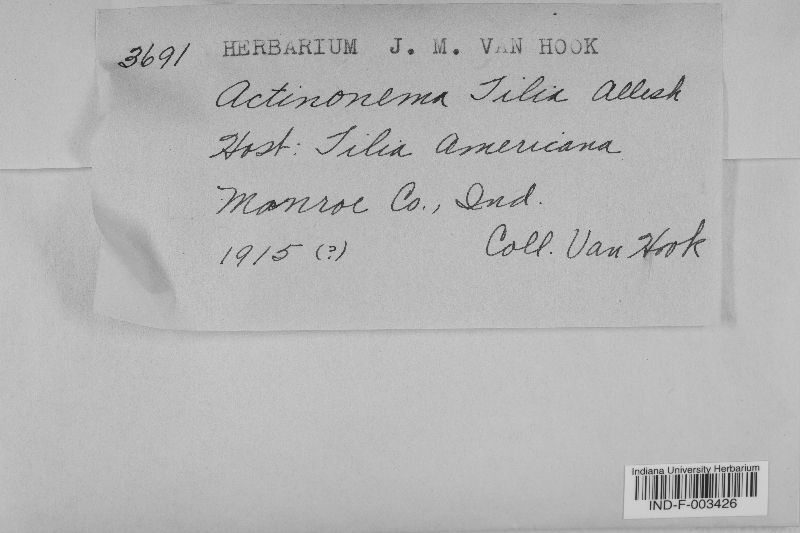 3691 HERBARIUM J. M. VAN HOOK
Actinonema Tilia Allesh
Host: Tilia Americana
Monroe Co., Ind.
1915 (?) Coll. Van Hook
Indiana University Herbarium
IND-F-003426